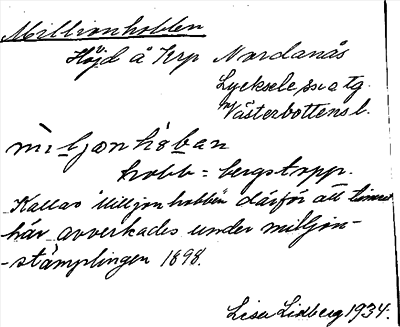 Millionhobben
Höjd å Krp Nordanås
Lycksele sn a tg.
Västerbottens l.
miljonhoban
hobb = bergstopp.
Kallas Miljonhobben därför att timret
här avverkades under miljon-
-stämplingen 1898.
Lisa Lidberg 1934.